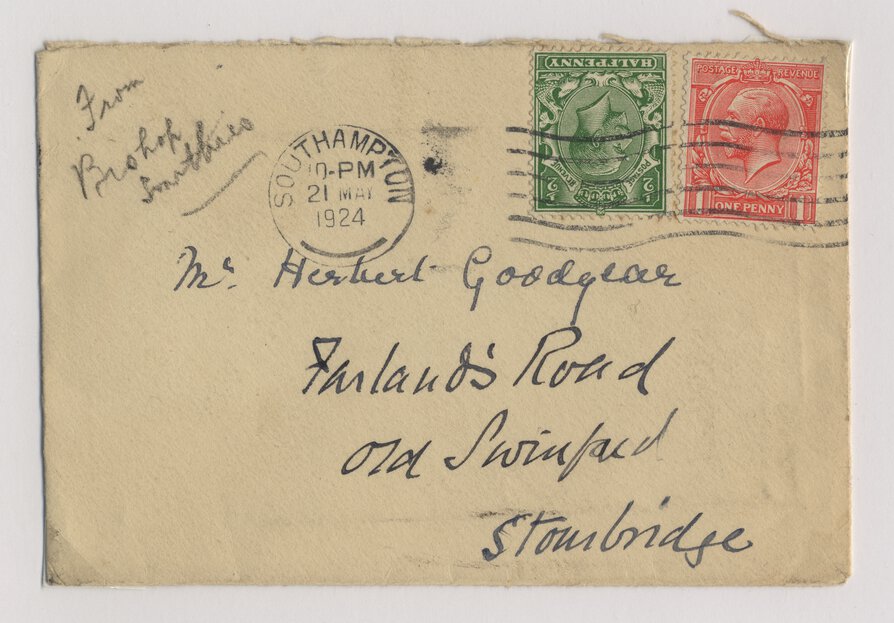 From
Bishop
Smithies
SOUTHAMPTON
10-PM
21 MAY
1924
HALFPENNY
POSTAGE
REVENUE
½ ½
POSTAGE REVENUE
1 ONE PENNY 1
Mr. Herbert Goodyear
Farland's Road
Old Swinford
Stourbridge